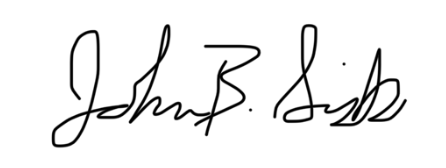 John B. Sisk